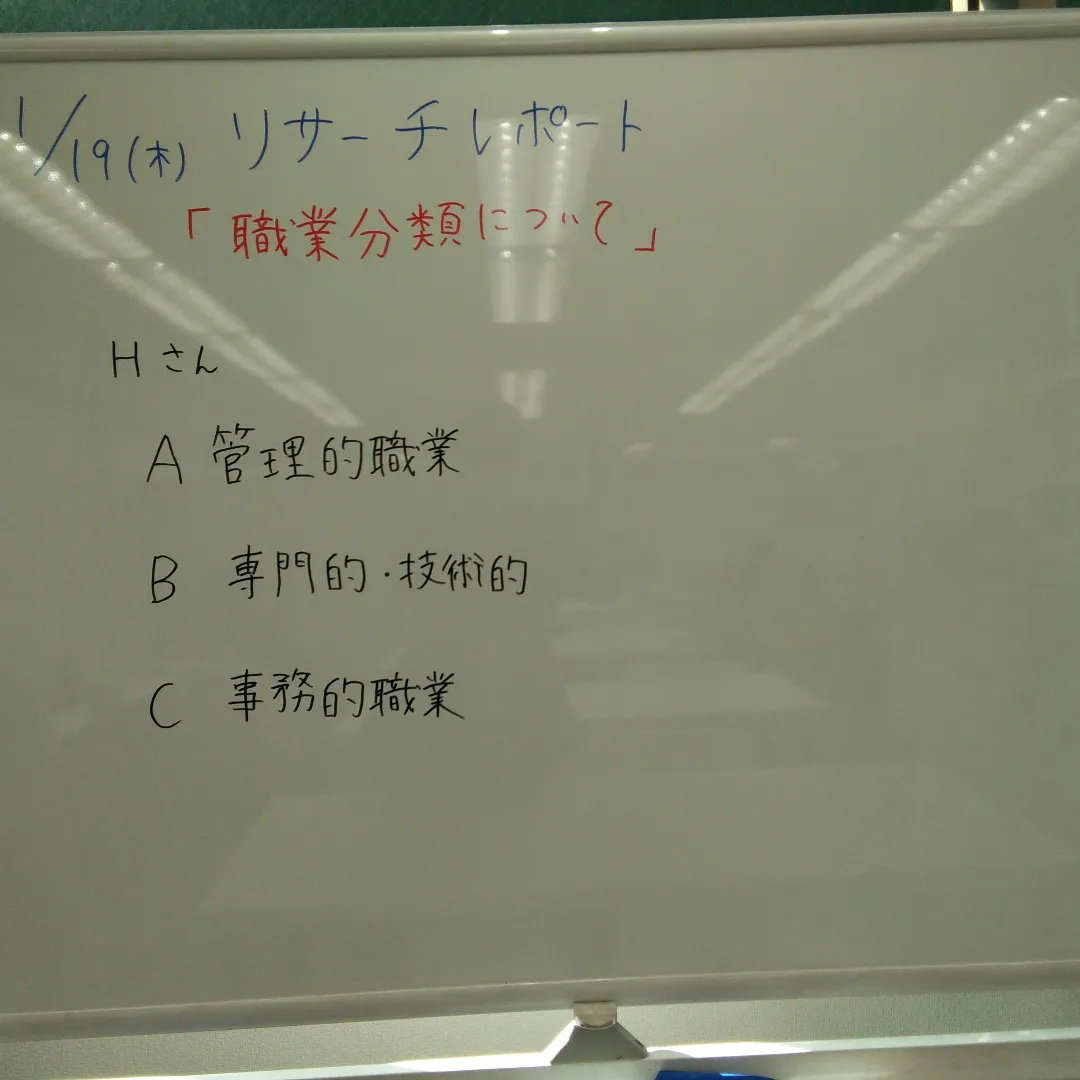 1/19(木) リサーチレポート
「職業分類について」
Hさん
A 管理的職業
B 専門的・技術的
C 事務的職業